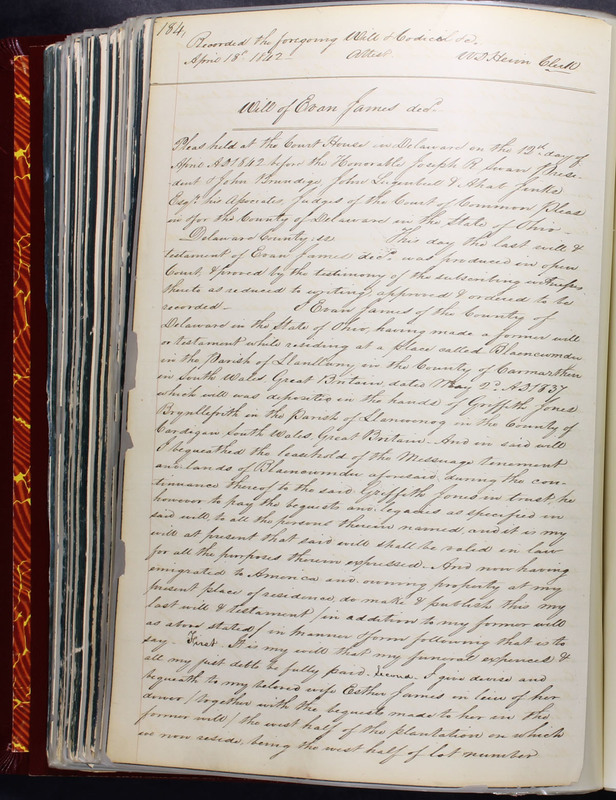 184,
Recorded the foregoing Will & Codicil &c.
April 18th 1842 Attest W D Heim Clerk
Will of Evan James decd.
Pleas held at the Court House in Delaware on the 12th day of
April AD 1842 before the Honorable Joseph R Swan Presi-
dent & John Brundige John Lugenbeel & Ahab Jinks
Esqs. his Associate Judges of the Court of Common Pleas
in & for the County of Delaware in the State of Ohio -
Delaware County ss This day the last will &
testament of Evan James decd. was produced in open
Court, & proved by the testimony of the subscribing witnesses
thereto as reduced to writing, approved & ordered to be
recorded - I Evan James of the County of
Delaware in the State of Ohio, having made a former will
or testament while residing at a place called Blaencwmdu
in the Parish of Llanlluny in the County of Carmarthen
in South Wales, Great Britain, dated May 2d. AD 1837
which will was deposited in the hands of Griffith Jones
Brynllefrith in the Parish of Llanwenog in the County of
Cardigan South Wales, Great Britain. And in said will
I bequeathed the leasehold of the Message tenement
and lands of Blaencwmdu aforesaid, during the con-
tinuance thereof to the said Griffith Jones in trust, he
however to pay the bequests and legacies as specified in
said will, to all the persons therein named, and it is my
will at present that said will shall be valid in law
for all the purposes therein expressed. And now having
emigrated to America and owning property at my
present place of residence, do make & publish this my
last will & testament / in addition to my former will
as above stated / in manner & form following that is to
say. First. It is my will that my funeral expences &
all my just debts be fully paid. I give devise and
bequeath to my beloved wife Esther James in lieu of her
dower / together with the bequests made to her in the
former will / the west half of the plantation on which
we now reside, being the west half of lot number